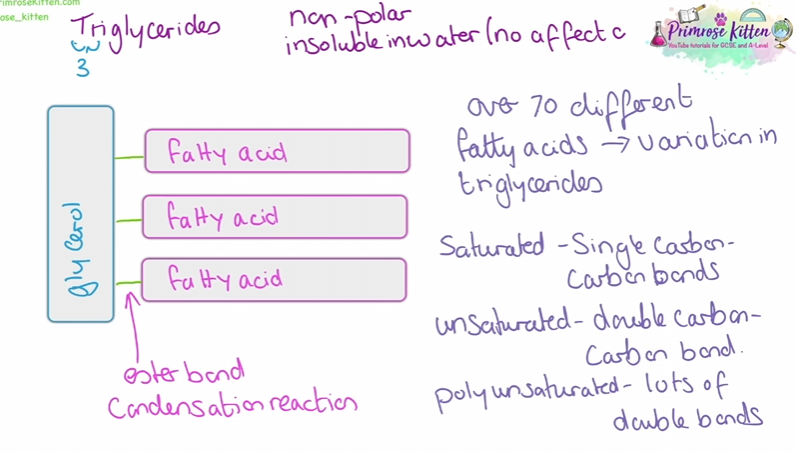 primrosekitten.com
rose_kitten
Triglycerides
3
non-polar
insoluble in water (no affect c
Primrose Kitten
YouTube tutorials for GCSE and A-Level
glycerol
fatty acid
fatty acid
fatty acid
ester bond
Condensation reaction
over 70 different
fatty acids → variation in
triglycerides
Saturated - Single Carbon-
Carbon bonds
unsaturated - double carbon-
Carbon bond.
polyunsaturated - lots of
double bonds